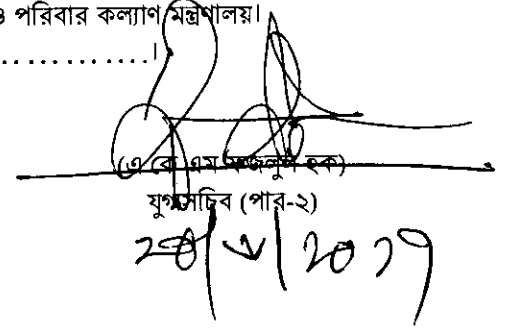 ও পরিবার কল্যাণ মন্ত্রণালয়।
................।
(এ কে এম ফজলুল হক)
যুগ্মসচিব (পার-২)